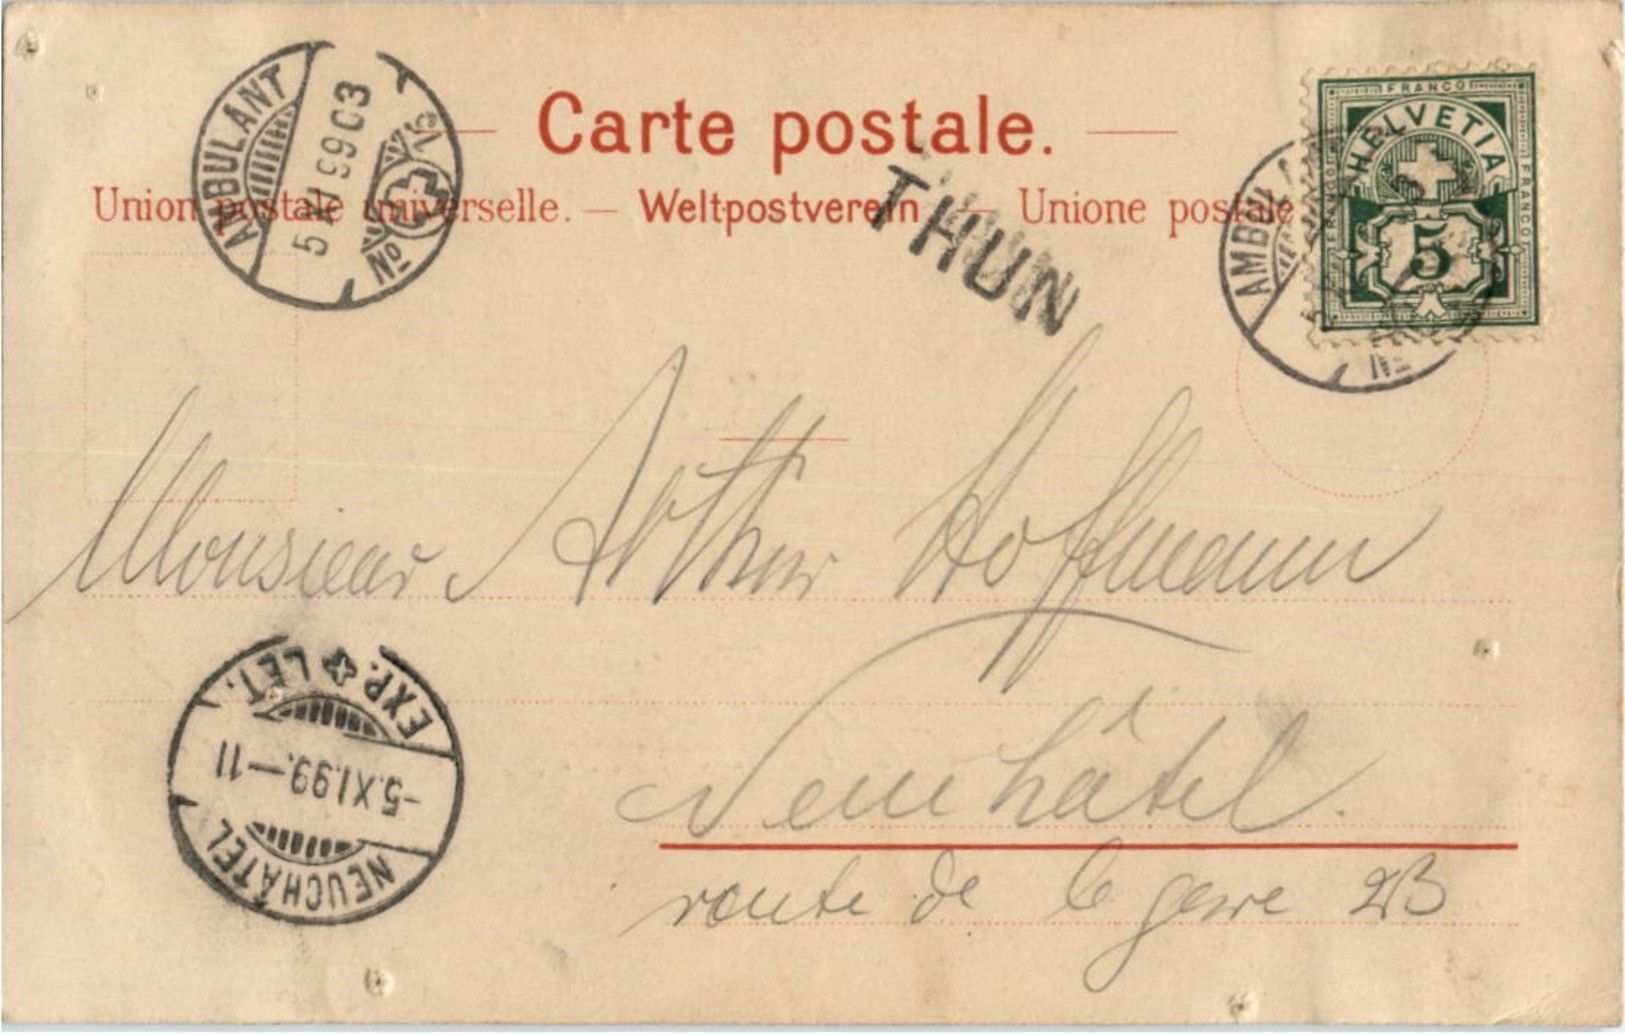 Carte postale.
Union postale universelle. — Weltpostverein — Unione postale
AMBULANT
5 XI 99 03
No 15
THUN
FRANCO
HELVETIA
FRANCO
FRANCO
5
AMBULA
No
Monsieur Arthur Hoffmann
Neuchâtel.
route de la gare 2B
EXP. LET.
-5.XI.99.-11
NEUCHÂTEL